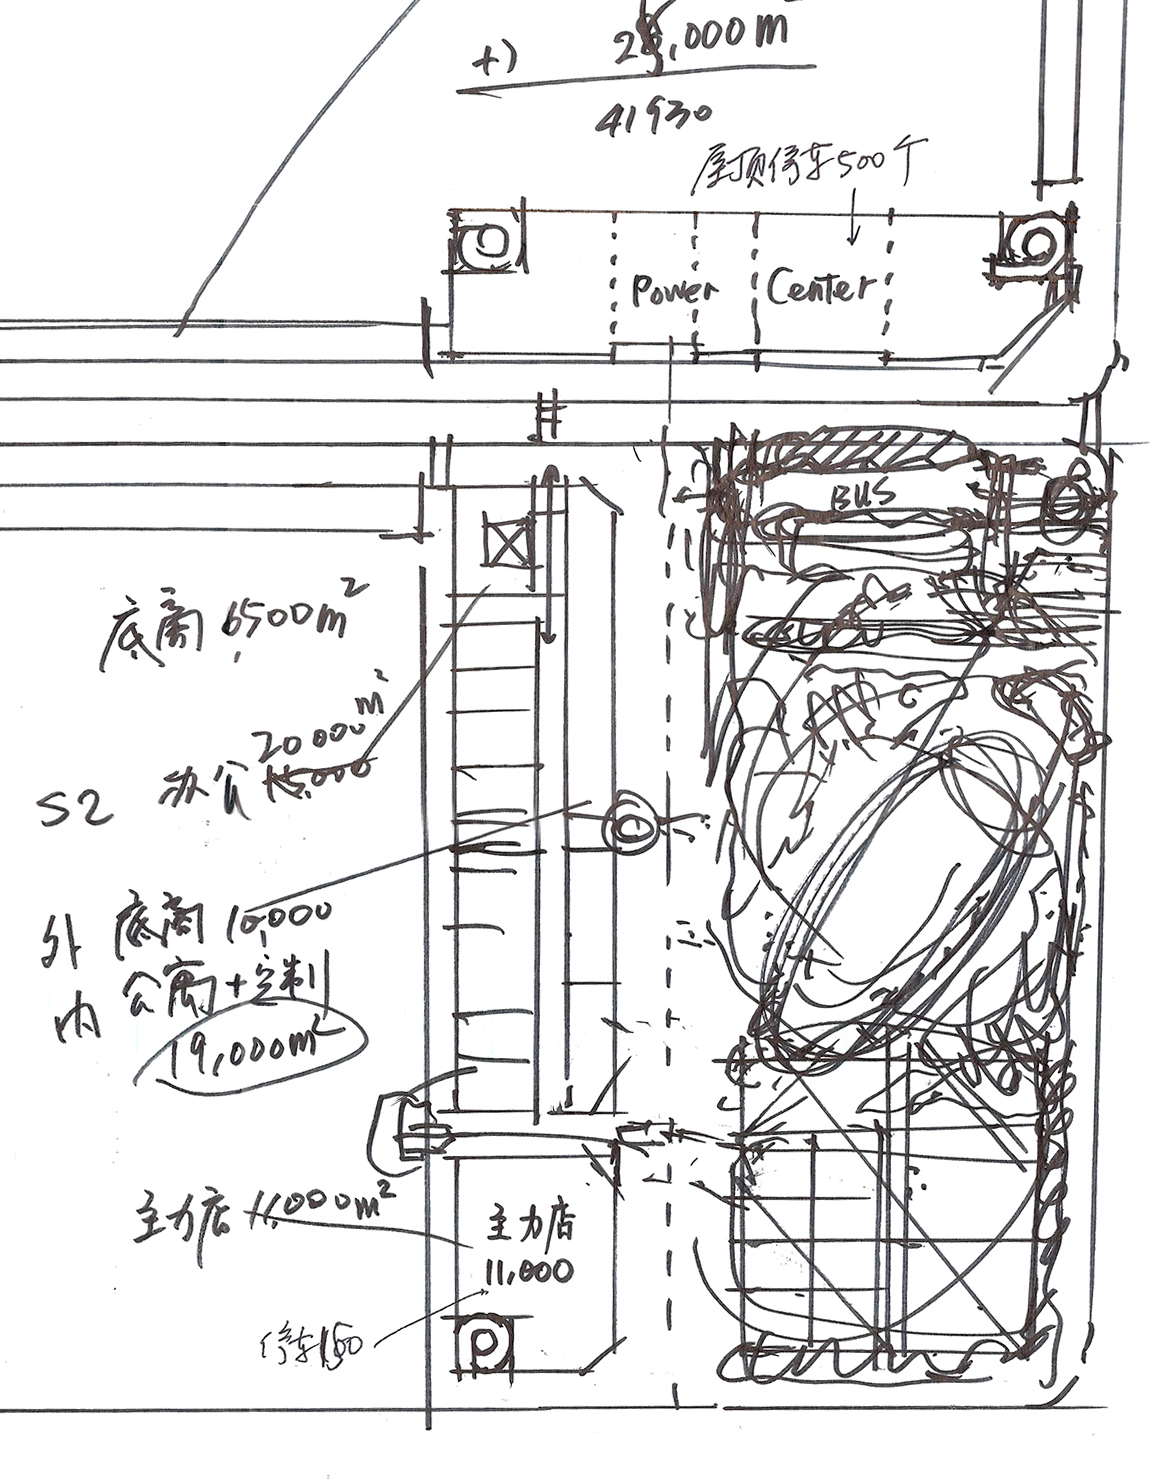 +)
,000m
41930
屋顶停车500个
Power
Center
BUS
底商 6500m²
20000m²
S2 办公 15,000
外 底商 10,000
内 公寓+定制
19,000m²
主力店 11,000m²
主力店
11,000
停车150
P